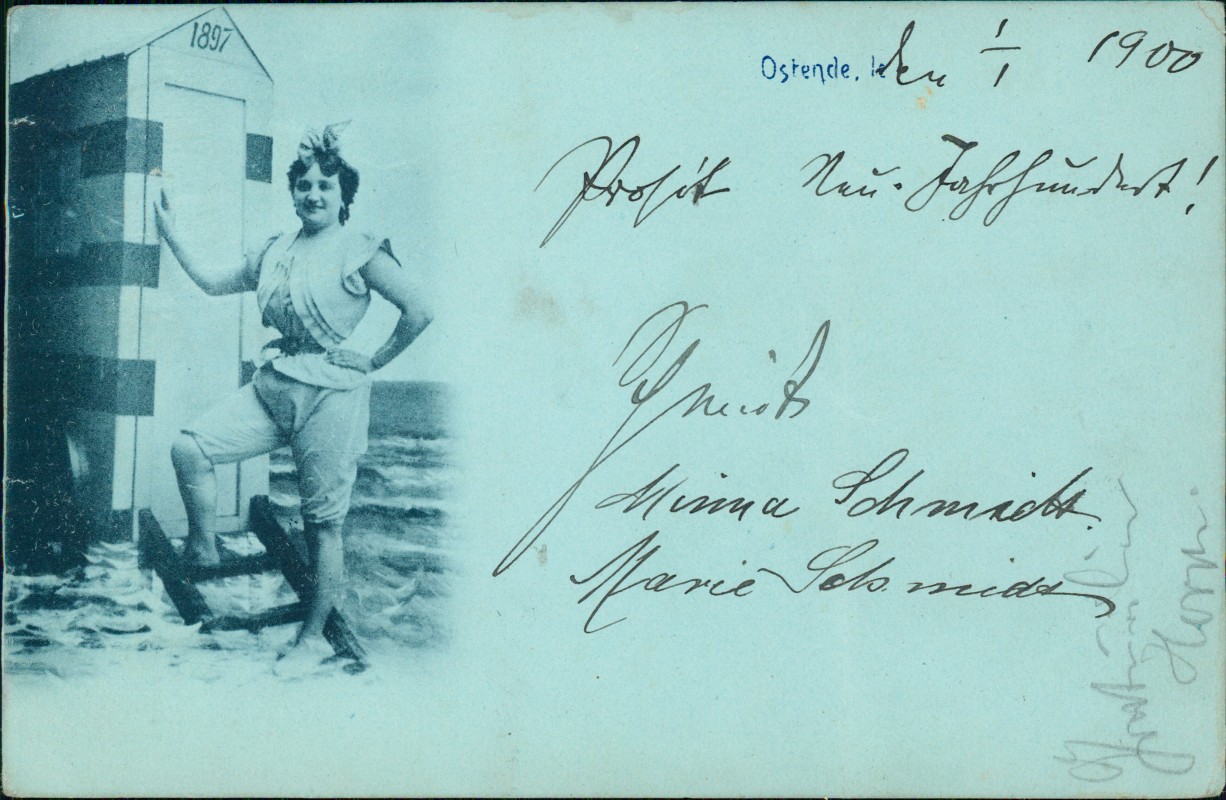 1897
Ostende, le den 1/1 1900
Prosit Neu-Jahrhundert!
Schmidt
Minna Schmidt.
Marie Schmidt